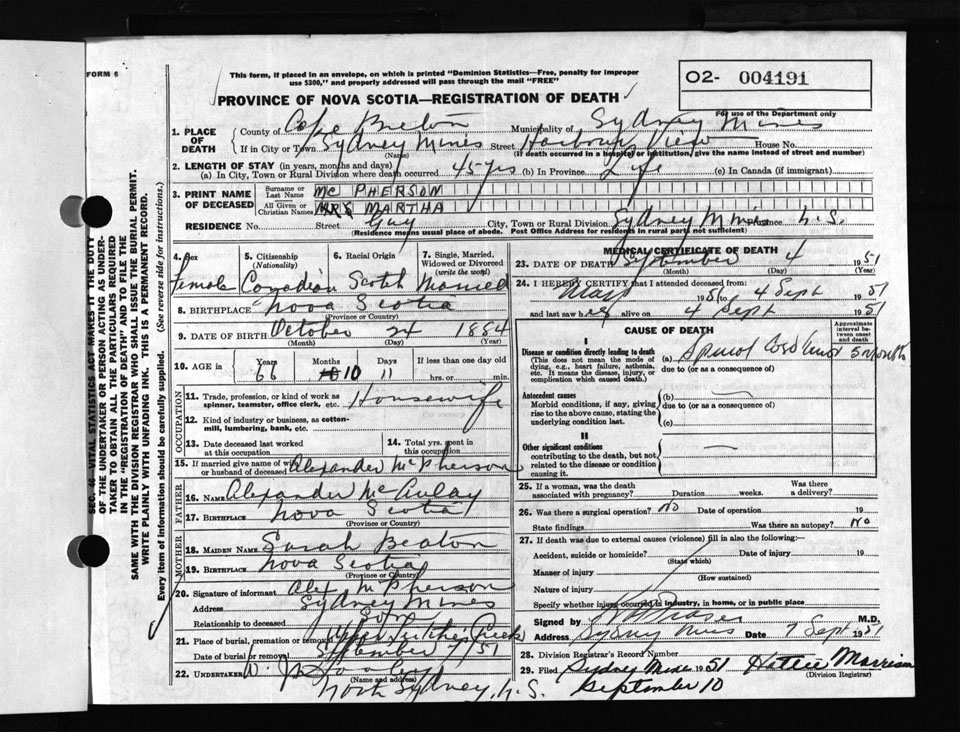 FORM 6
This form, if placed in an envelope, on which is printed "Dominion Statistics—Free, penalty for improper
use $300," and properly addressed will pass through the mail "FREE"
O2- 004191
For use of the Department only
PROVINCE OF NOVA SCOTIA—REGISTRATION OF DEATH
1. PLACE OF DEATH County of Cape Breton Municipality of Sydney Mines
If in City or Town Sydney Mines Street Harbour View House No.
(Name) (If death occurred in a hospital or institution, give the name instead of street and number)
2. LENGTH OF STAY (in years, months and days)
(a) In City, Town or Rural Division where death occurred 45 yrs (b) In Province Life (c) In Canada (if immigrant)
3. PRINT NAME OF DECEASED Surname or Last Name MC PHERSON
All Given or Christian Names MRS MARTHA
RESIDENCE No. Street Guy City, Town or Rural Division Sydney Mines Province N.S.
(Residence means usual place of abode. Post Office Address for residents in rural parts not sufficient)
4. Sex 5. Citizenship (Nationality) 6. Racial Origin 7. Single, Married, Widowed or Divorced (write the word)
female Canadian Scotch Married
8. BIRTHPLACE Nova Scotia
(Province or Country)
9. DATE OF BIRTH October 24 1884
(Month) (Day) (Year)
10. AGE in Years Months Days If less than one day old
66 10 11 hrs. or min.
OCCUPATION
11. Trade, profession, or kind of work as spinner, teamster, office clerk, etc. Housewife
12. Kind of industry or business, as cotton-mill, lumbering, bank, etc.
13. Date deceased last worked at this occupation
14. Total yrs. spent in this occupation
15. If married give name of wife or husband of deceased Alexander McPherson
FATHER
16. NAME Alexander McAulay
17. BIRTHPLACE Nova Scotia
(Province or Country)
MOTHER
18. MAIDEN NAME Sarah Beaton
19. BIRTHPLACE Nova Scotia
(Province or Country)
20. Signature of informant Alex McPherson
Address Sydney Mines
Relationship to deceased Son
21. Place of burial, cremation or removal Upper Leitches Creek
Date of burial or removal September 7/51
22. UNDERTAKER
(Name and address)
North Sydney, N.S.
MEDICAL CERTIFICATE OF DEATH
23. DATE OF DEATH September 4 1951
(Month) (Day) (Year)
24. I HEREBY CERTIFY that I attended deceased from
May 1951 to 4 Sept 1951
and last saw her alive on 4 Sept 1951
CAUSE OF DEATH
Approximate interval between onset and death
I
Disease or condition directly leading to death (a)
(This does not mean the mode of dying, e.g., heart failure, asthenia, etc. It means the disease, injury, or complication which caused death.)
due to (or as a consequence of)
Antecedent causes (b)
Morbid conditions, if any, giving rise to the above cause, stating the underlying condition last.
due to (or as a consequence of)
(c)
II
Other significant conditions
contributing to the death, but not related to the disease or condition causing it.
25. If a woman, was the death associated with pregnancy? Duration weeks. Was there a delivery?
26. Was there a surgical operation? No Date of operation 19
State findings Was there an autopsy? No
27. If death was due to external causes (violence) fill in also the following:—
Accident, suicide or homicide? Date of injury 19
(State which)
Manner of injury
(How sustained)
Nature of injury
Specify whether injury occurred in industry, in home, or in public place
Signed by Fraser M.D.
Address Sydney Mines Date 7 Sept 1951
28. Division Registrar's Record Number
29. Filed Sydney Mines 1951 Hattie Morrison
September 10 (Division Registrar)
SEC. 46—VITAL STATISTICS ACT MAKES IT THE DUTY
OF THE UNDERTAKER OR PERSON ACTING AS UNDER-
TAKER TO OBTAIN ALL THE PARTICULARS REQUIRED
IN THE "REGISTRATION OF DEATH" AND TO FILE THE
SAME WITH THE DIVISION REGISTRAR WHO SHALL ISSUE THE BURIAL PERMIT.
WRITE PLAINLY WITH UNFADING INK. THIS IS A PERMANENT RECORD.
Every item of information should be carefully supplied. (See reverse side for instructions.)